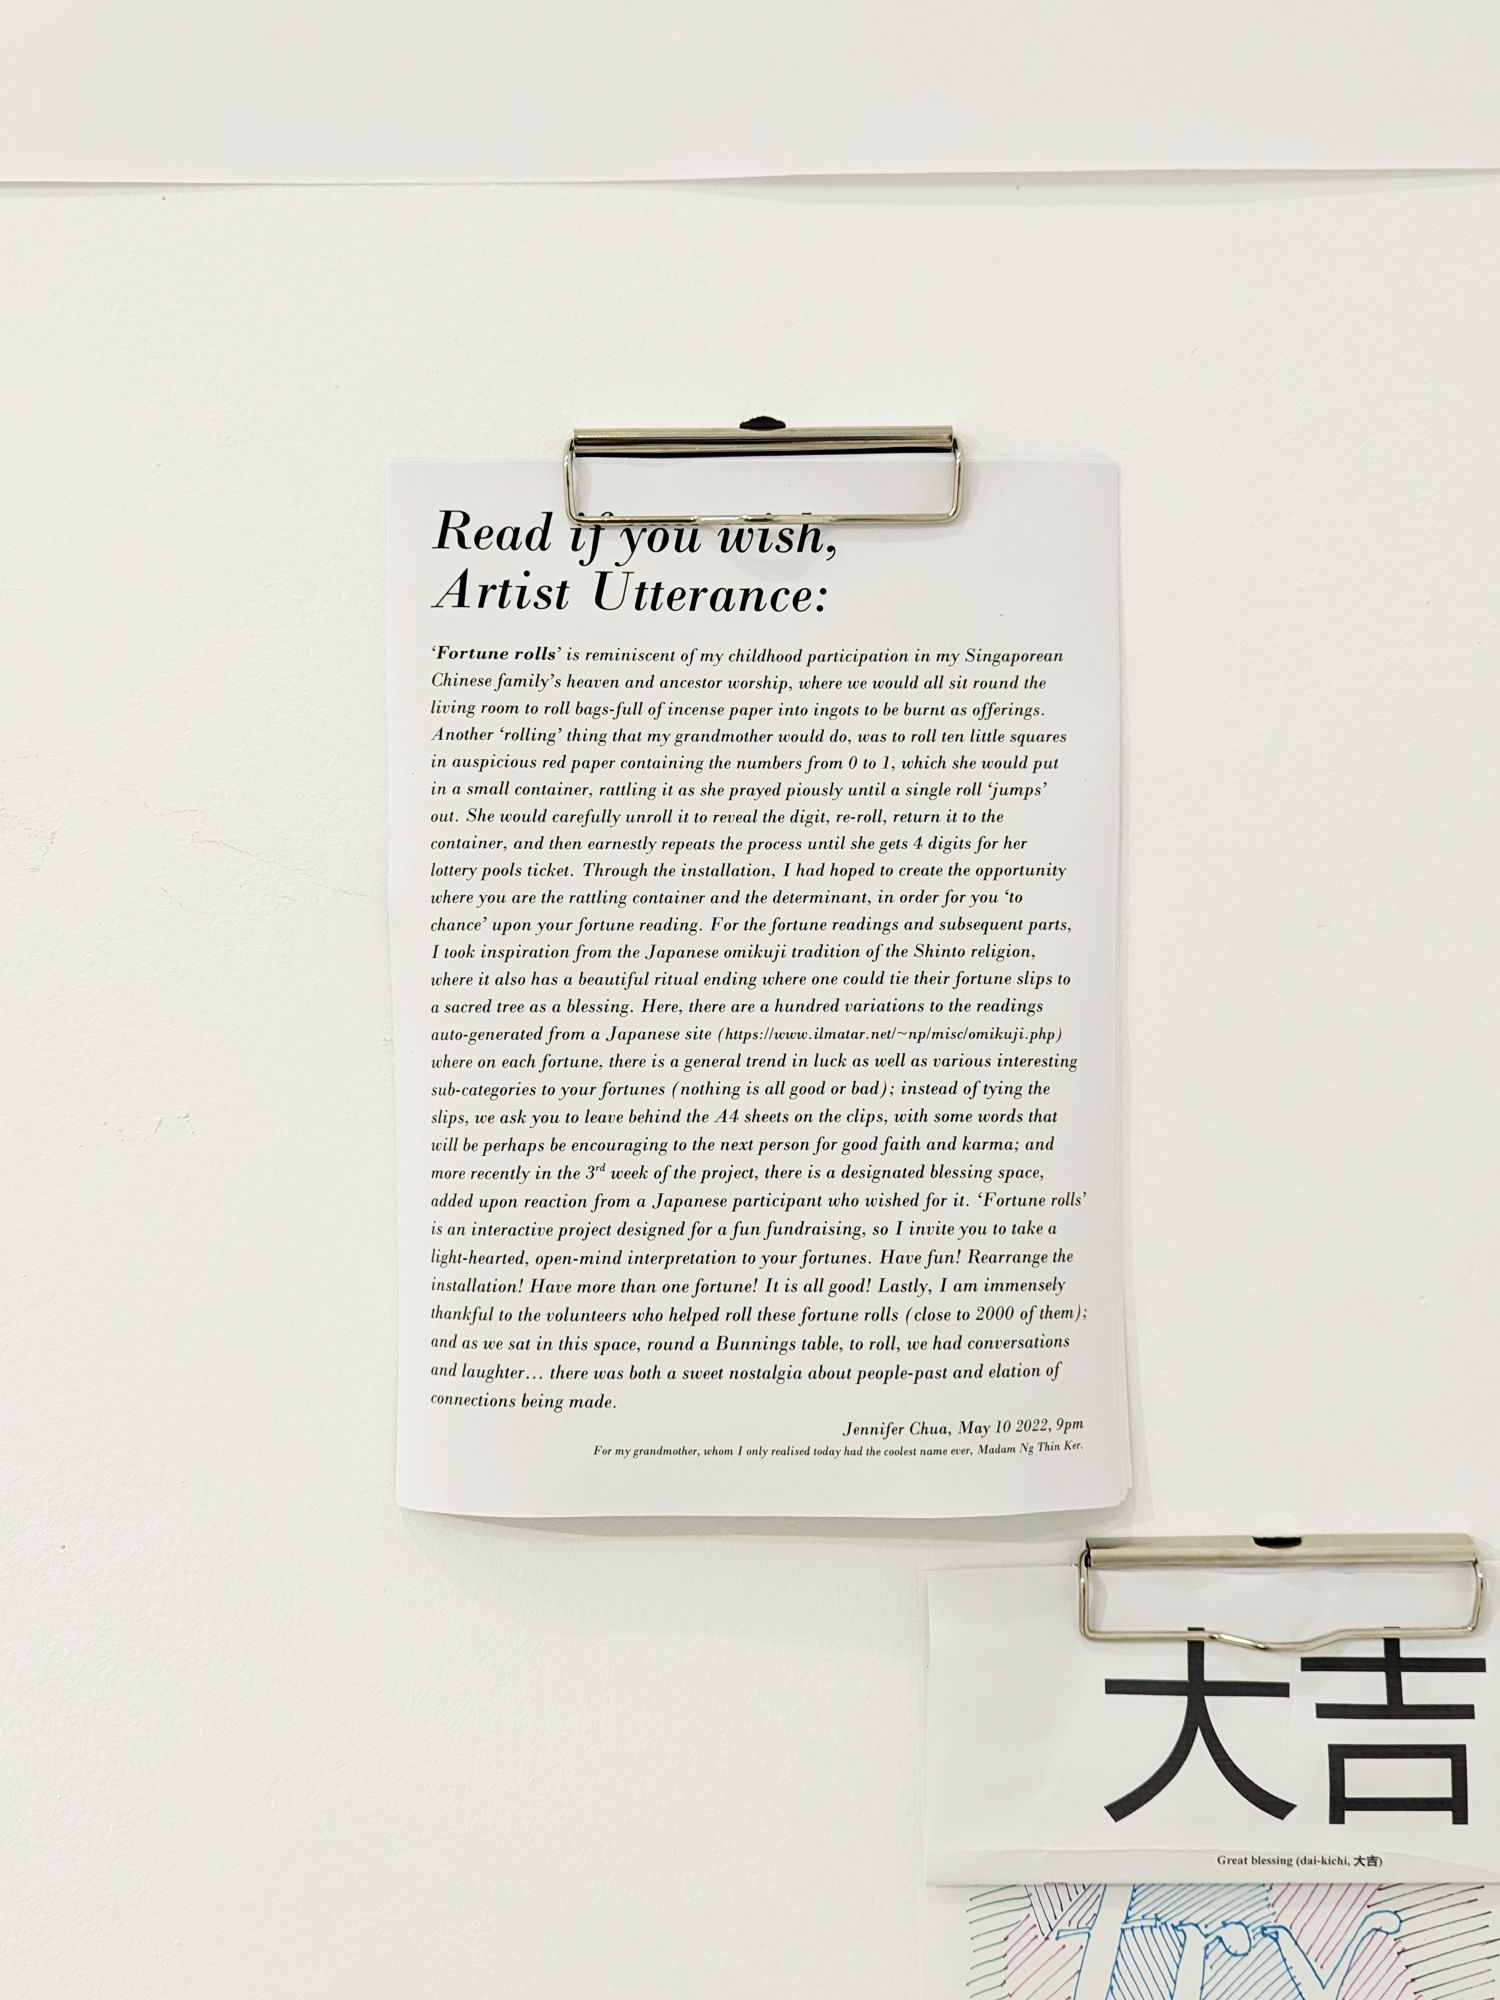 Read if you wish,
Artist Utterance:
‘Fortune rolls’ is reminiscent of my childhood participation in my Singaporean
Chinese family’s heaven and ancestor worship, where we would all sit round the
living room to roll bags-full of incense paper into ingots to be burnt as offerings.
Another ‘rolling’ thing that my grandmother would do, was to roll ten little squares
in auspicious red paper containing the numbers from 0 to 1, which she would put
in a small container, rattling it as she prayed piously until a single roll ‘jumps’
out. She would carefully unroll it to reveal the digit, re-roll, return it to the
container, and then earnestly repeats the process until she gets 4 digits for her
lottery pools ticket. Through the installation, I had hoped to create the opportunity
where you are the rattling container and the determinant, in order for you ‘to
chance’ upon your fortune reading. For the fortune readings and subsequent parts,
I took inspiration from the Japanese omikuji tradition of the Shinto religion,
where it also has a beautiful ritual ending where one could tie their fortune slips to
a sacred tree as a blessing. Here, there are a hundred variations to the readings
auto-generated from a Japanese site (https://www.ilmatar.net/~np/misc/omikuji.php)
where on each fortune, there is a general trend in luck as well as various interesting
sub-categories to your fortunes (nothing is all good or bad); instead of tying the
slips, we ask you to leave behind the A4 sheets on the clips, with some words that
will be perhaps be encouraging to the next person for good faith and karma; and
more recently in the 3rd week of the project, there is a designated blessing space,
added upon reaction from a Japanese participant who wished for it. ‘Fortune rolls’
is an interactive project designed for a fun fundraising, so I invite you to take a
light-hearted, open-mind interpretation to your fortunes. Have fun! Rearrange the
installation! Have more than one fortune! It is all good! Lastly, I am immensely
thankful to the volunteers who helped roll these fortune rolls (close to 2000 of them);
and as we sat in this space, round a Bunnings table, to roll, we had conversations
and laughter… there was both a sweet nostalgia about people-past and elation of
connections being made.
Jennifer Chua, May 10 2022, 9pm
For my grandmother, whom I only realised today had the coolest name ever, Madam Ng Thin Ker.
大吉
Great blessing (dai-kichi, 大吉)